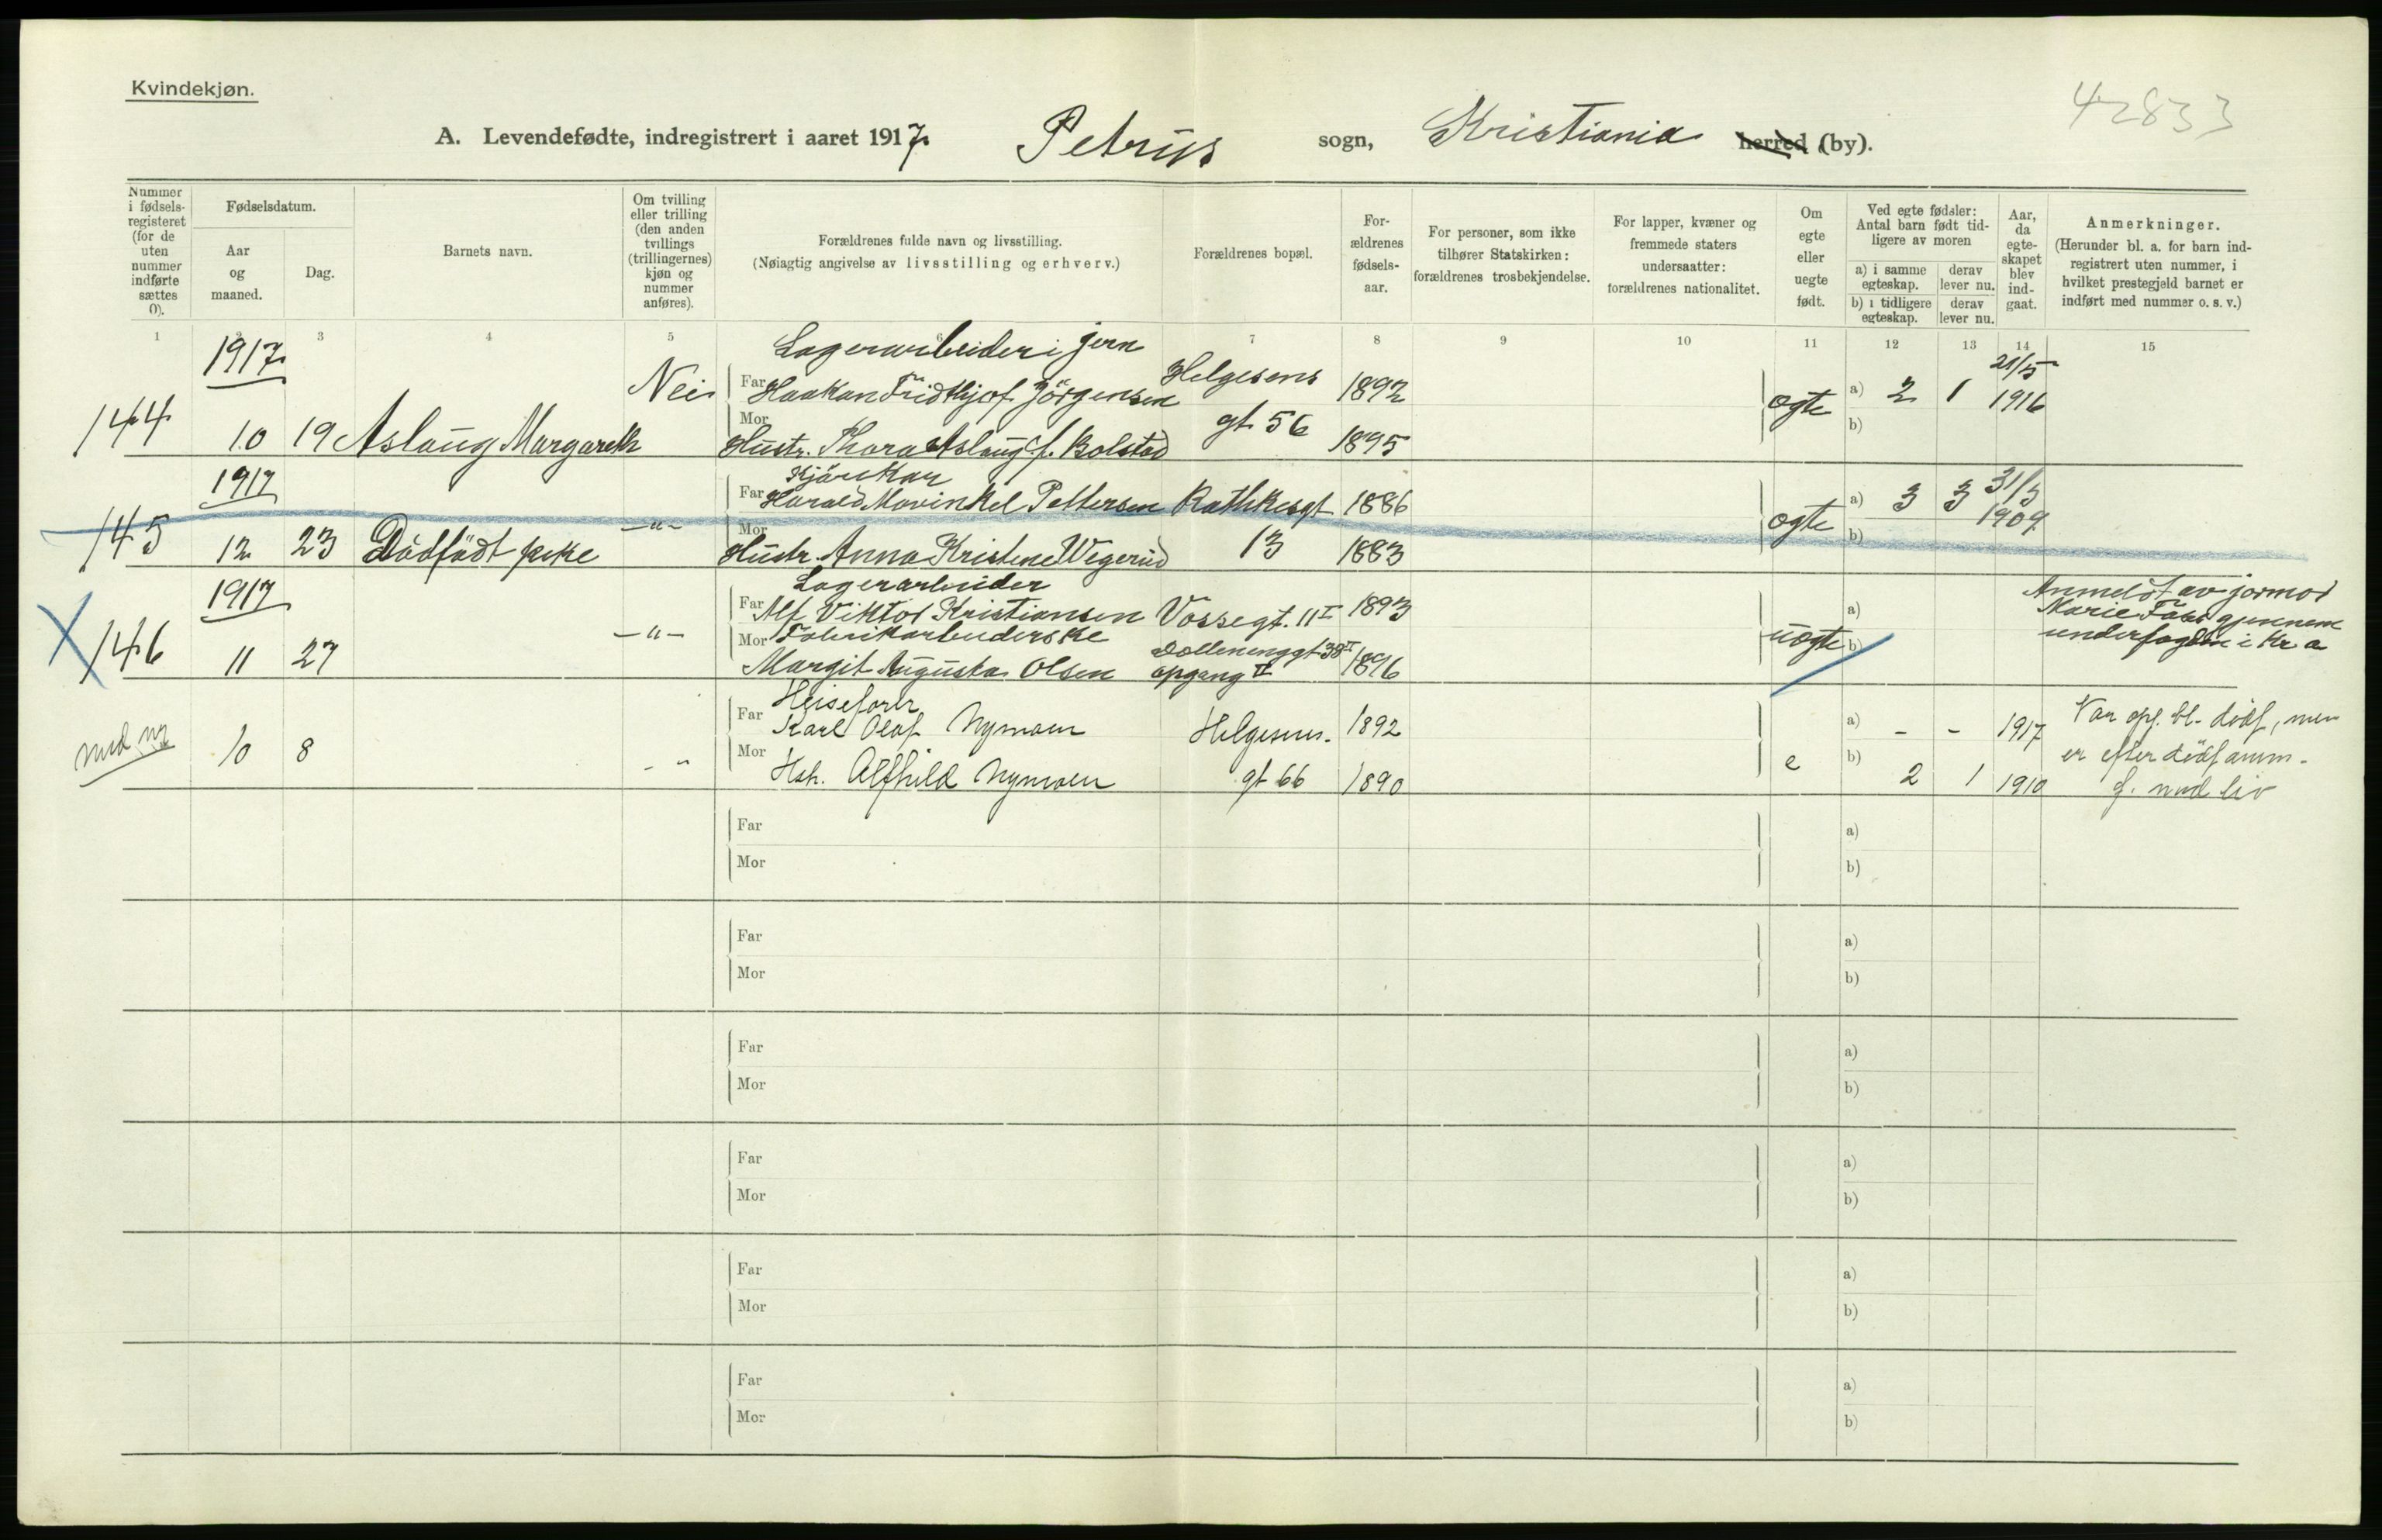 Kvindekjøn.
42833
A. Levendefødte, indregistrert i aaret 1917. Petrus sogn, Kristiania herred (by).
Nummer i fødsels-registeret (for de uten nummer indførte sættes 0).
Fødselsdatum.
Aar og maaned.
Dag.
Barnets navn.
Om tvilling eller trilling (den anden tvillings (trillingernes) kjøn og nummer anføres).
Forældrenes fulde navn og livsstilling.
(Nøiagtig angivelse av livsstilling og erhverv.)
Forældrenes bopæl.
For-ældrenes fødsels-aar.
For personer, som ikke tilhører Statskirken: forældrenes trosbekjendelse.
For lapper, kvæner og fremmede staters undersaatter: forældrenes nationalitet.
Om egte eller uegte født.
Ved egte fødsler: Antal barn født tid-ligere av moren
a) i samme egteskap.
derav lever nu.
b) i tidligere egteskap.
derav lever nu.
Aar, da egte-skapet blev ind-gaat.
Anmerkninger.
(Herunder bl. a. for barn ind-registrert uten nummer, i hvilket prestegjeld barnet er indført med nummer o. s. v.)
1 2 3 4 5 6 7 8 9 10 11 12 13 14 15
1917.
Lagerarbeider i jern
Nei Far Haakon Fridthjof Jörgensen Helgesens 1892 a) 2 1 21/5 1916
144 10 19 Aslaug Margareth Mor Hustr. Thora Aslaug f. Bolstad gt 56 1895 egte b)
1917
Kjörekar
Far Harald Mowinkel Pettersen Rathkesgt 1886 a) 3 3 31/3 1909
145 12 23 Dödfödt pike —"— Mor Hustr. Anna Kristine Wegerud 13 1883 egte b)
1917
Lagerarbeider
Far Alf Viktor Kristiansen Vossegt. 11 I 1893 a) Anmeldt av jormor
Marie gjennem
X 146 11 27 —"— Mor Fabrikarbeiderske uegte b) underfogden i Kr a
Margit Augusta Olsen opgang II 1896
Heiseförer
med nr 10 8 - " Far Karl Olaf Nymoen Helgesens- 1892 a) - - 1917 Var opf. bl. dödf, men
Mor e b) er efter dödf anm.
Alfhild Nymoen gt 66 1890 2 1 1910 f. med liv
Far a)
Mor b)
Far a)
Mor b)
Far a)
Mor b)
Far a)
Mor b)
Far a)
Mor b)
Far a)
Mor b)